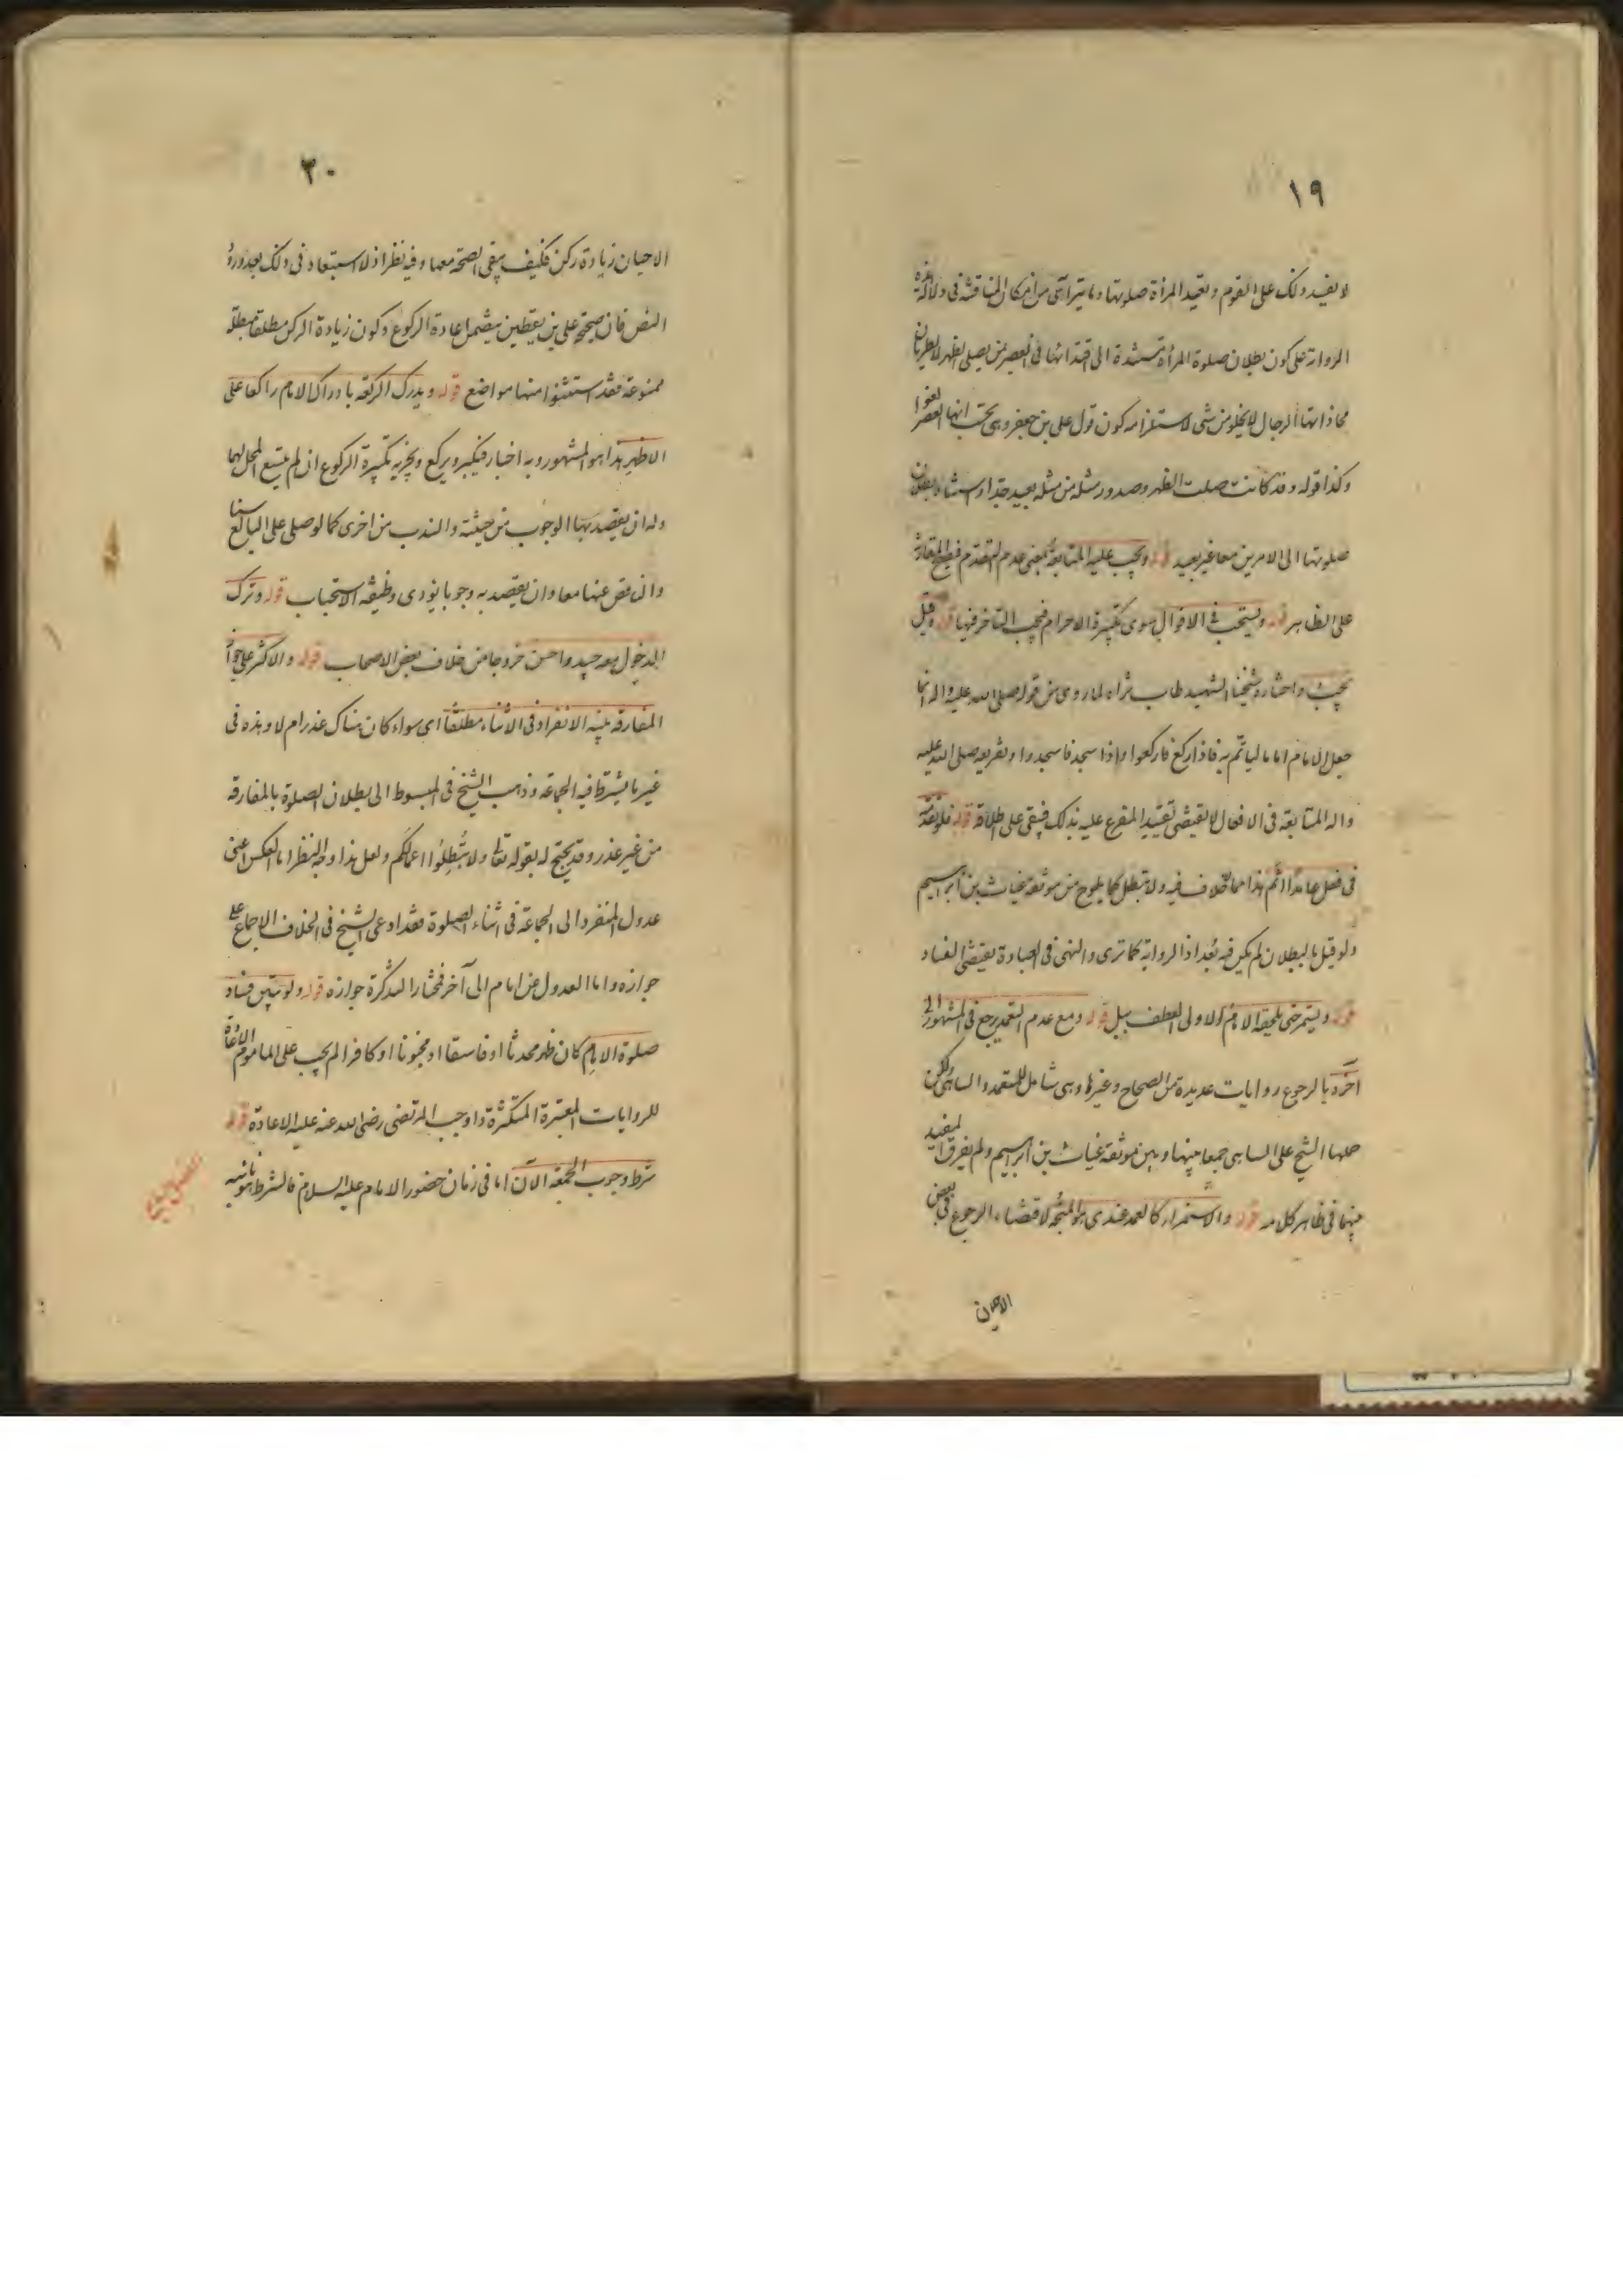 ١٩
لا يفسد ذلك على القوم وتعيد المرأة صلوتها وما يتراآى من امكان المناقشة فى دلالة هذه
الرواية على كون بطلان صلوة المرأة مستندة الى اقتدائها فى العصر بمن يصلى الظهر لا بطريان
محاذاتها الرجال لا يخلو من شى لاستلزامه كون قول على بن جعفر وهى تحسب انها العصر لغوا
وكذا قوله وقد كانت صلت الظهر وصدور مثله من مثله بعيد جدا واستناد بطلان
صلوتها الى الامرين معا غير بعيد قوله ويجب عليه المتابعة بمعنى عدم التقدم فيصح المقارنة
على الظاهر قوله ويستحب فى الاقوال سوى تكبيرة الاحرام فيجب التاخر فيها قوله وقيل
يجب واختاره شيخنا الشهيد طاب ثراه لما روى من قوله صلى الله عليه واله انما
جعل الامام اماما ليأتم به فاذا ركع فاركعوا واذا سجد فاسجدوا وتفريعه صلى الله عليه
واله المتابعة فى الافعال لا يقتضى تقييد المفرع عليه بذلك فيبقى على اطلاقه قوله فلو تقدمه
فى فعل عامدا اثم هذا مما لا خلاف فيه ولا تبطل كما يلوح من موثقة غياث بن ابراهيم
ولو قيل بالبطلان لم يكن فيه بعد اذ الرواية كما ترى والنهى فى العبادة يقتضى الفساد
قوله ويستمر حتى يلحقه الامام الاولى العطف ببل قوله ومع عدم التعمد يرجع فى المشهور الى
اخره بالرجوع روايات عديدة من الصحاح وغيرها وهى شامل للمتعمد والساهى ولكن
حملها الشيخ على الساهى جمعا بينها وبين موثقة غياث بن ابراهيم ولم يفرق المفيد
بينهما فى ظاهر كلامه قوله والاستمرار كالعمد عندى هو المتجه لاقتضاء الرجوع فى بعض
الاحيان
٢٠
الاحيان زيادة ركن فكيف يبقى الصحة معها وفيه نظر اذ لا استبعاد فى ذلك بعد ورود
النص فان صحيحة على بن يقطين يتضمن اعادة الركوع وكون زيادة الركن مطلقا مبطلة
ممنوعة فقد استثنوا منها مواضع قوله ويدرك الركعة بادراك الامام راكعا على
الاظهر هذا هو المشهور وبه اخبار فيكبر ويركع ويجزيه تكبيرة الركوع ان لم يتسع المحل لهما
وله ان يقصد بها الوجوب من حيثية والندب من اخرى كما لو صلى على البالغ ستا
والناقص عنها معا وان يقصد به وجوبا يؤدى وظيفة الاستحباب قوله وترك
الدخول معه جيد واحسن خروجا من خلاف بعض الاصحاب قوله والاكثر على جواز
المفارقة بنية الانفراد فى الاثناء مطلقا اى سواء كان هناك عذر ام لا وهذه فى
غير ما يشترط فيه الجماعة وذهب الشيخ فى المبسوط الى بطلان الصلوة بالمفارقة
من غير عذر وقد يحتج له بقوله تعالى ولا تبطلوا اعمالكم ولعل هذا وجه النظر اما العكس اعنى
عدول المنفرد الى الجماعة فى اثناء الصلوة فقد ادعى الشيخ فى الخلاف الاجماع على
جوازه واما العدول عن امام الى آخر فمختار التذكرة جوازه قوله ولو تبين فساد
صلوة الامام كان ظهر محدثا او فاسقا او مجنونا او كافرا لم يجب على الماموم الاعادة
للروايات المعتبرة المتكثرة واوجب المرتضى رضى الله عنه عليه الاعادة قوله
شرط وجوب الجمعة الآن اما فى زمان حضور الامام عليه السلام فالشرط هو نائبه